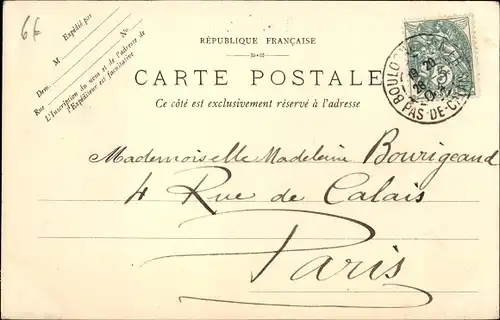 6€
Expédié par
M
No
Dem.
Rue
L'Inscription du nom et de l'adresse de
l'Expéditeur est facultative
RÉPUBLIQUE FRANÇAISE
CARTE POSTALE
Ce côté est exclusivement réservé à l'adresse
BOULOGNE
PAS-DE-CALAIS
Mademoiselle Madeleine Bourigeaud
4 Rue de Calais
Paris